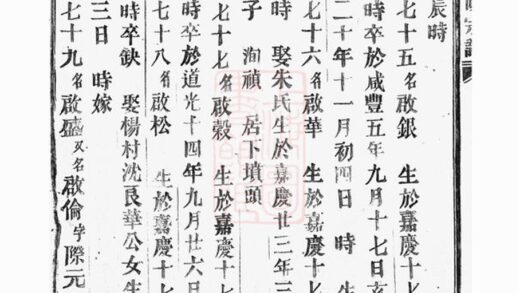 辰時
七十五名啟銀 生於嘉慶十七
時卒於咸豐五年九月十七日亥
二十年十一月初四日 時 生
七十六名啟華 生於嘉慶十七
時 娶朱氏生於嘉慶廿三年三
子 洵禎 居下墳頭
七十七名啟穀 生於嘉慶十七
時卒於道光十四年九月廿六日
七十八名啟松 生於嘉慶十七
時卒缺 娶楊村沈良華公女生
三日 時嫁
七十九名啟盛又名啟倫字際元